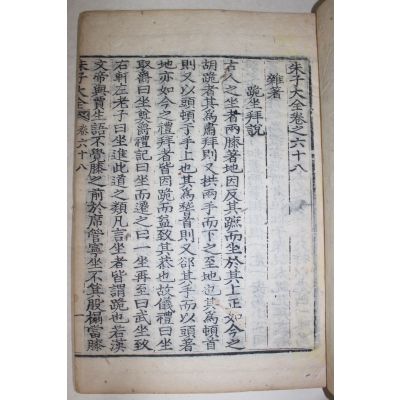 朱子大全卷之六十八
雜著
跪坐拜說
古人之坐者兩膝著地因反其蹠而坐於其上正如今之
胡跪者其爲肅拜則又拱兩手而下之至地也其爲頓首
則又以頭頓于手上也其爲稽首則又卻其手而以頭著
地亦如今之禮拜者皆因跪而益致其恭也故儀禮曰坐
取爵曰坐奠爵禮記曰坐而遷之曰一坐再至曰武坐致
右軒左老子曰坐進此道之類凡言坐者皆謂跪也若漢
文帝與賈生語不覺膝之前於席管寧坐不箕股榻當膝
朱子大全 卷六十八 一